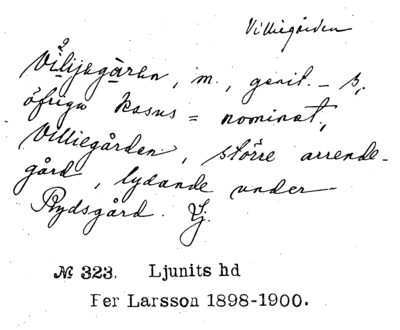 Villiegården
Vilijegärin, m., genit. – s;
öfriga kasus = nominat,
Villiegården, större arrende-
gård, lydande under
Rydsgård. Lj.
№ 323. Ljunits hd
Per Larsson 1898-1900.